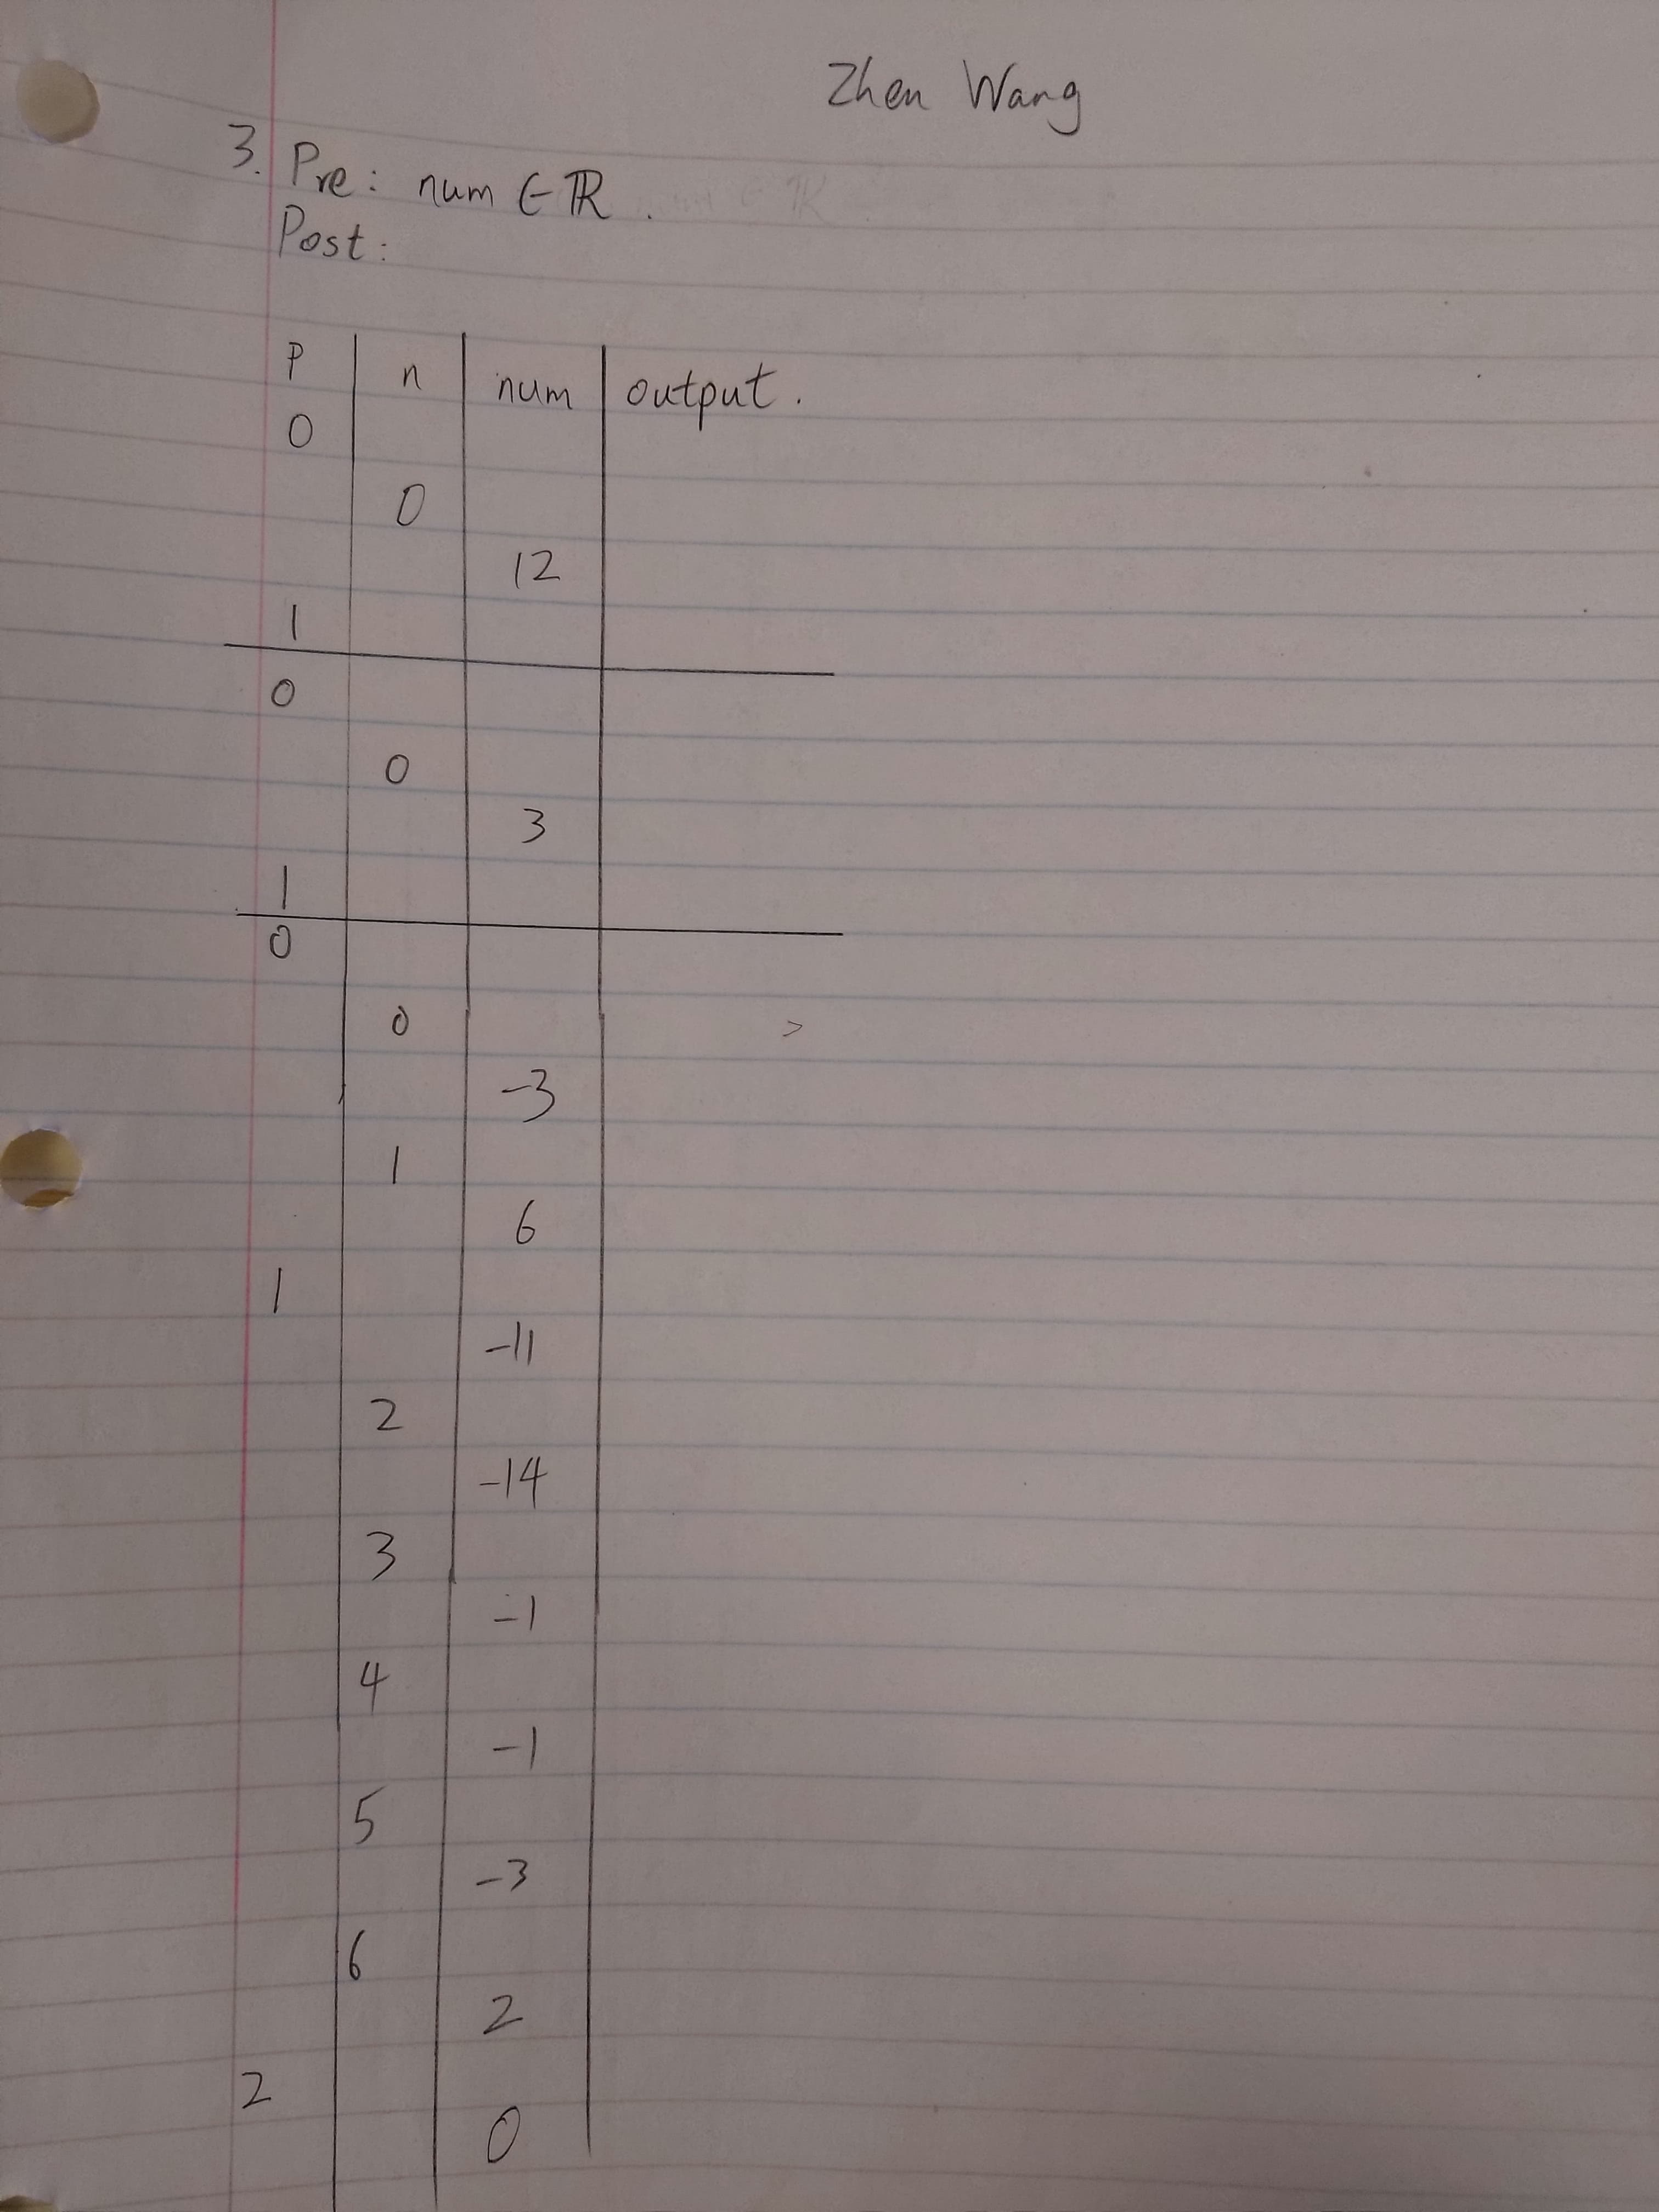 Zhen Wang
3. Pre: num ∈ ℝ.
Post:
P n num output.
0
0
12
1
0
0
3
1
0
0
-3
1
6
1
-11
2
-14
3
-1
4
-1
5
-3
6
2
2
0